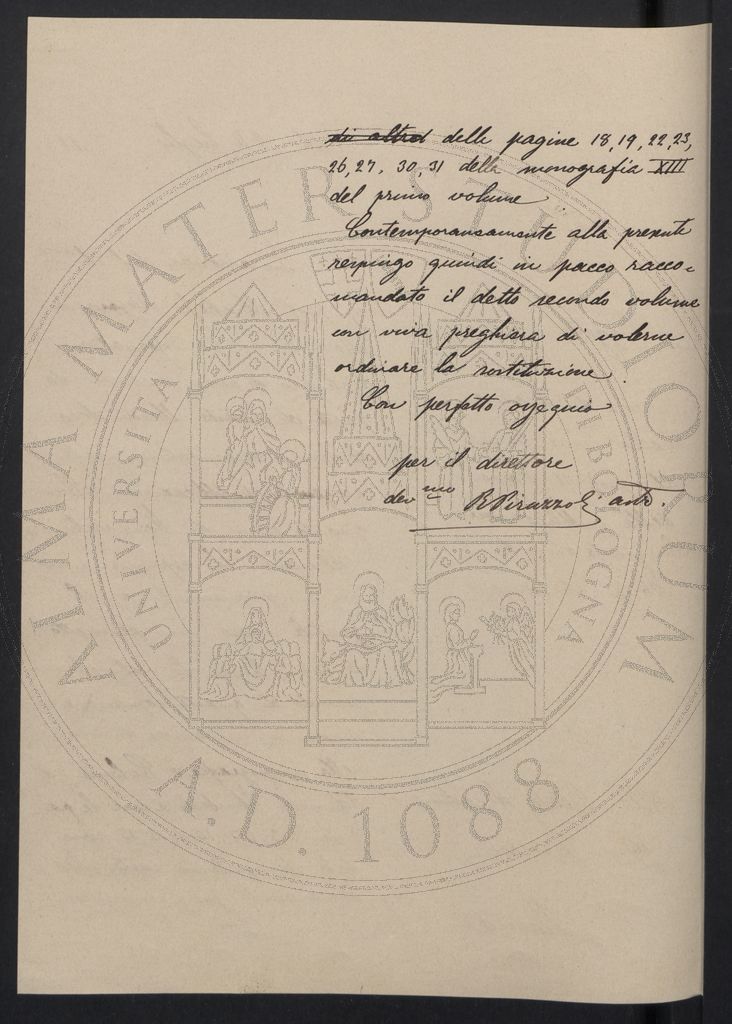 di altro delle pagine 18, 19, 22, 23,
26, 27, 30, 31 della monografia XIII
del primo volume
Contemporaneamente alla presente
respingo quindi in pacco racco-
mandato il detto secondo volume
con viva preghiera di volerne
ordinare la sostituzione.
Con perfetto ossequio
per il direttore
dev.mo R Pirazzoli
ALMA MATER STUDIORUM
UNIVERSITA DI BOLOGNA
A.D. 1088